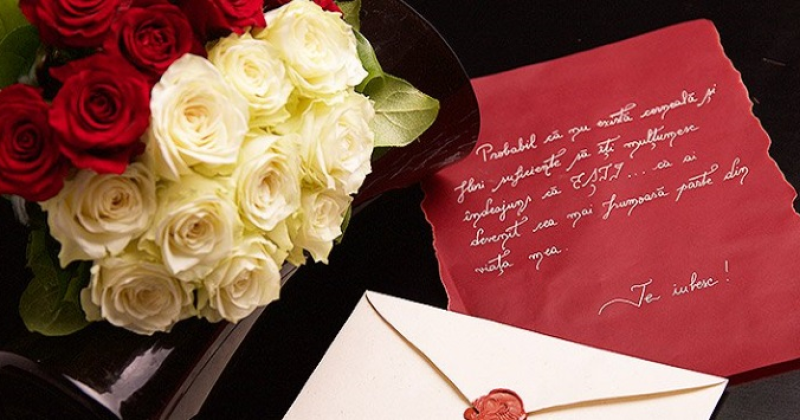 Probabil că nu există cerneală și
flori suficiente să îți mulțumesc
îndeajuns că EȘTI... că ai
devenit cea mai frumoasă parte din
viața mea.
Te iubesc!